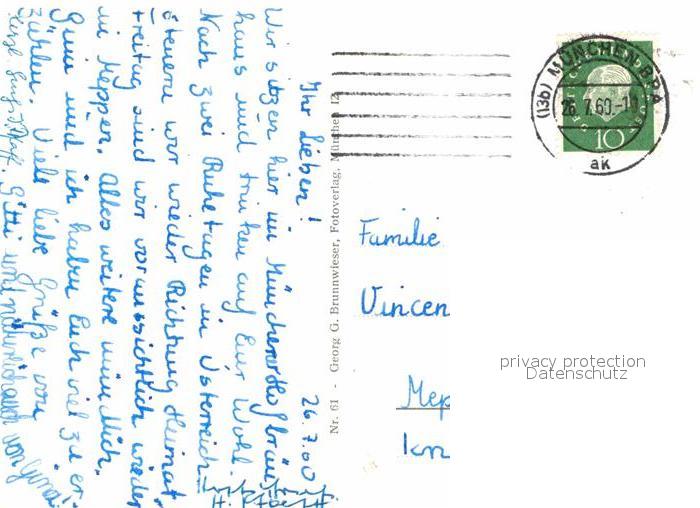 26.7.60
Ihr Lieben!
Wir sitzen hier im Münchener Hofbräu,
haus und trinken auf Euer Wohl.
Nach zwei Ruhetagen in Österreich
steuern wir wieder Richtung Heimat.
Freitag sind wir voraussichtlich wieder
in Meppen. Alles weitere mündlich.
Günni und ich haben Euch viel zu er-
zählen. Viele liebe Grüße von
Gitti und natürlich auch von
Nr. 61 - Georg G. Brunnwieser, Fotoverlag, München 12
(13b) MÜNCHEN BPA
26.7.60.-1
ak
10
Familie
Vincen
Mep
privacy protection
Datenschutz